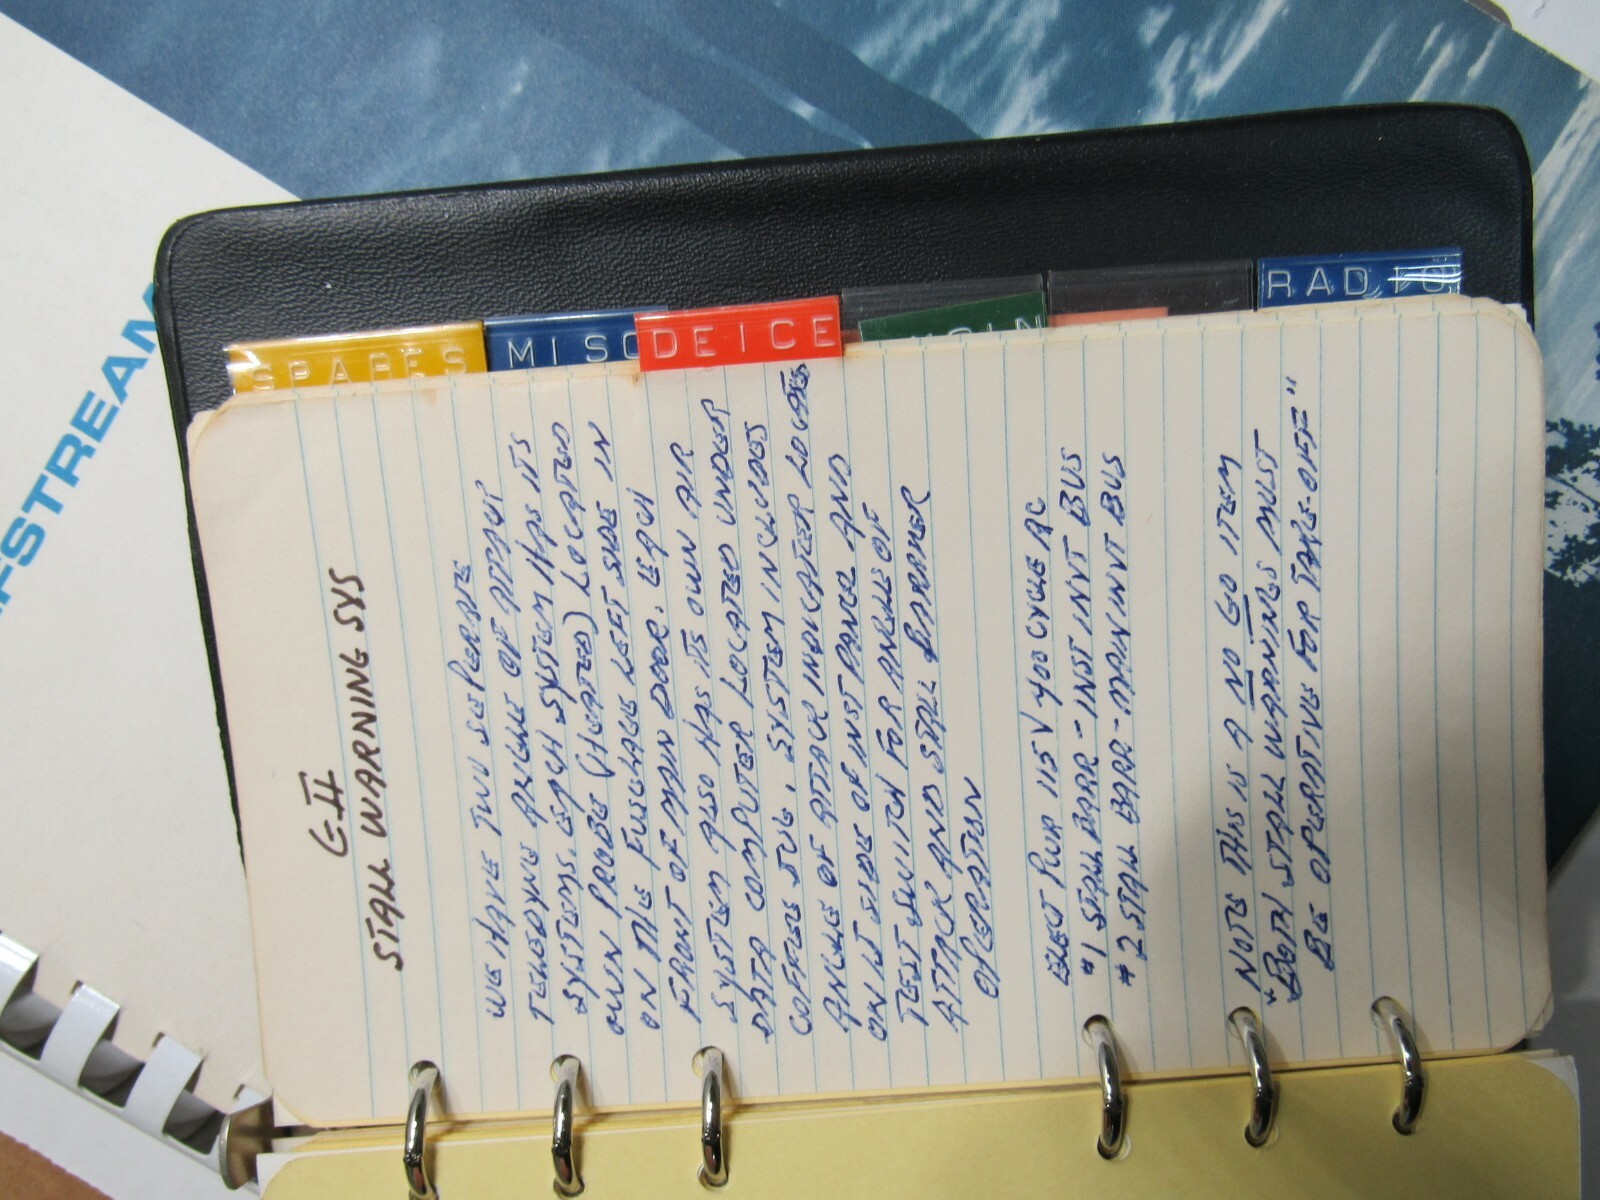 G-II
STALL WARNING SYS
WE HAVE TWO SEPERATE
TELEDYNE ANGLE OF ATTACK
SYSTEMS. EACH SYSTEM HAS ITS
OWN PROBE (HEATED) LOCATED
ON THE FUSELAGE LEFT SIDE IN
FRONT OF MAIN DOOR. EACH
SYSTEM ALSO HAS ITS OWN AIR
DATA COMPUTER LOCATED UNDER
COFFEE JUG. SYSTEM INCLUDES
ANGLE OF ATTACK INDICATER LOCATED
ON LT SIDE OF INST PANEL AND
TEST SWITCH FOR ANGLE OF
ATTACK AND STALL BARRIER
OPERATION
ELECT PWR 115V 400 CYCLE AC
#1 STALL BARR - INST INVT BUS
#2 STALL BARR - MAIN INVT BUS
NOTE THIS IS A NO GO ITEM
* "BOTH STALL WARNINGS MUST
BE OPERATIVE FOR TAKE-OFF"
SPARES
MISC
DEICE
RADIO
FSTREAM